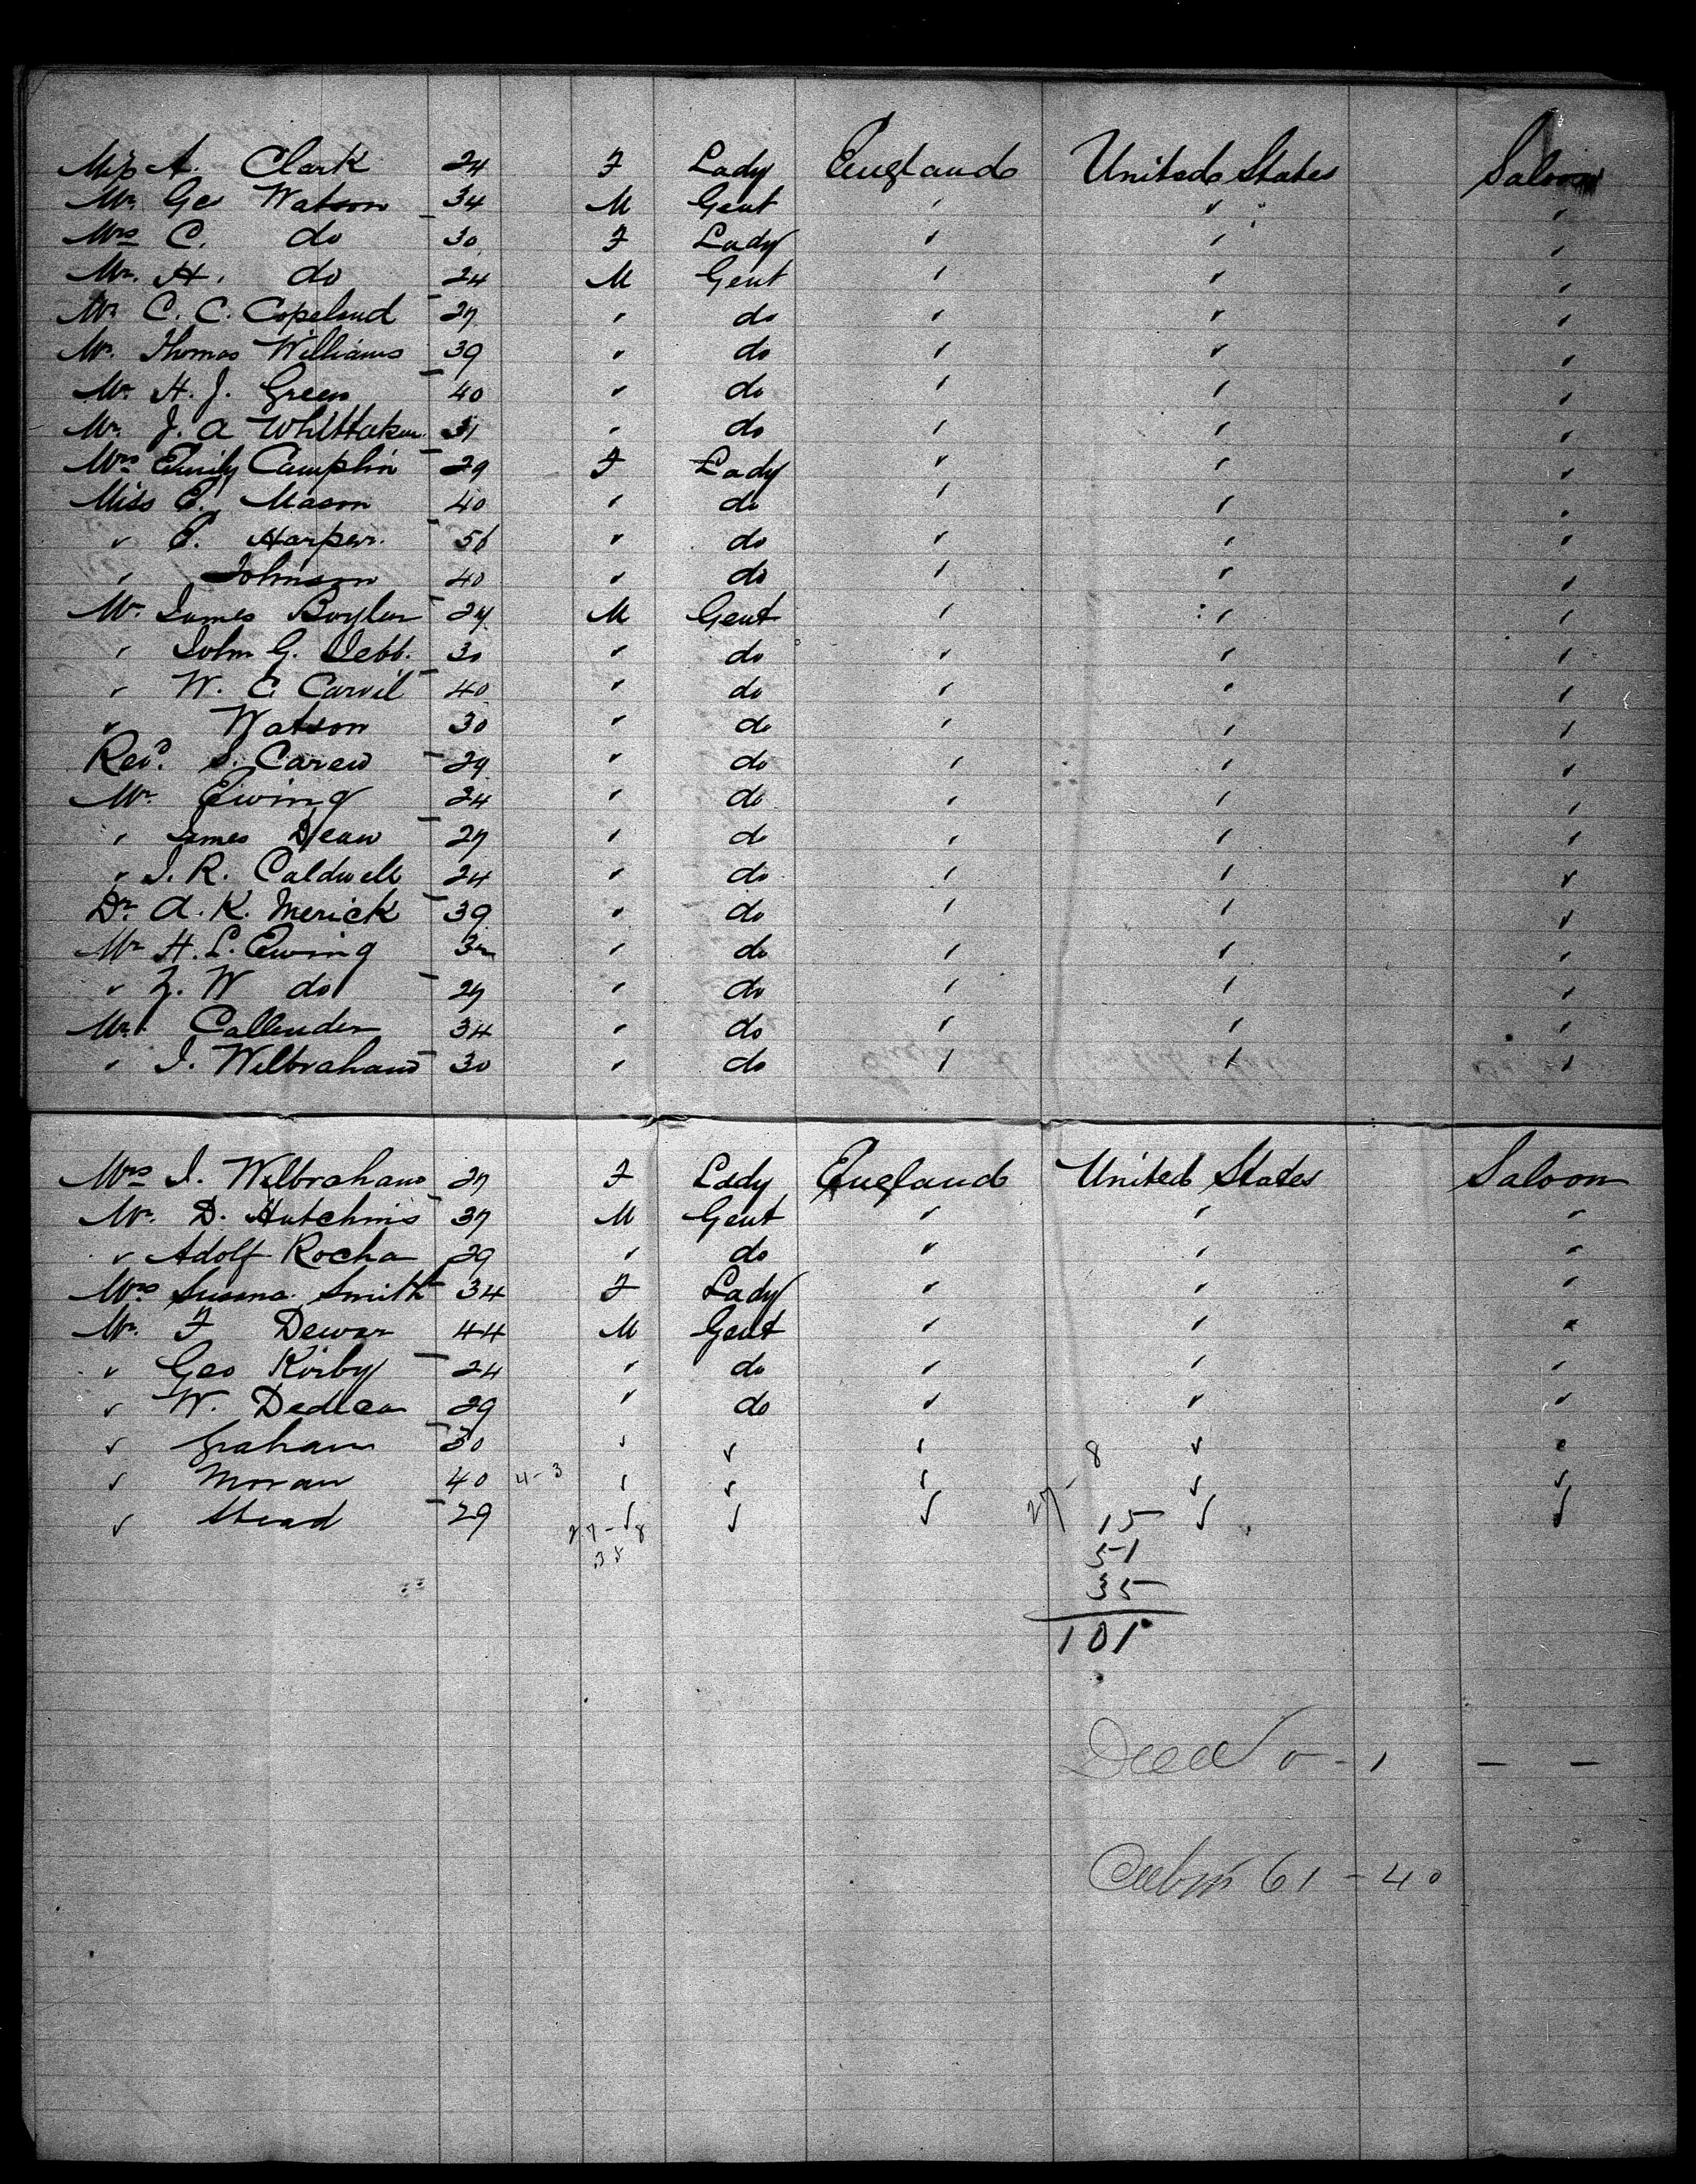 Miss A. Clark 24 F Lady England United States Saloon
Mr. Geo Watson 34 M Gent " " "
Mrs C. do 30 F Lady " " "
Mr. H. do 24 M Gent " " "
Mr C. C. Copeland 27 " do " " "
Mr. Thomas Williams 39 " do " " "
Mr H. J. Green 40 " do " " "
Mr. J. A Whittaker 31 " do " " "
Mrs Emily Camplin 29 F Lady " " "
Miss E. Mason 40 " do " " "
" E. Harper. 56 " do " " "
" Johnson 40 " do " " "
Mr. James Boylen 24 M Gent " " "
" John G. Debb. 30 " do " " "
" W. C. Carvil 40 " do " " "
" Watson 30 " do " " "
Revd. S. Carew 29 " do " " "
Mr. Ewing 24 " do " " "
" James Dean 27 " do " " "
" J. R. Caldwell 24 " do " " "
Dr. A. K. Merick 39 " do " " "
Mr H. L. Ewing 32 " do " " "
" Z. W do 27 " do " " "
Mr. Callender 34 " do " " "
" J. Wilbraham 30 " do " " "
Mrs J. Wilbraham 27 F Lady England United States Saloon
Mr. D. Hutchins 37 M Gent " " "
" Adolf Rocha 29 " do " " "
Mrs Susana Smith 34 F Lady " " "
Mr. F Dewar 44 M Gent " " "
" Geo Kirby 24 " do " " "
" W. 29 " do " " "
" Graham 30 " " " " "
" Moran 40 4-3 " " " 8 " "
" Stead 29 27-8 " " 27 15 " "
35 51
35
101
Dead 0-1 - -
Cabin 61-40